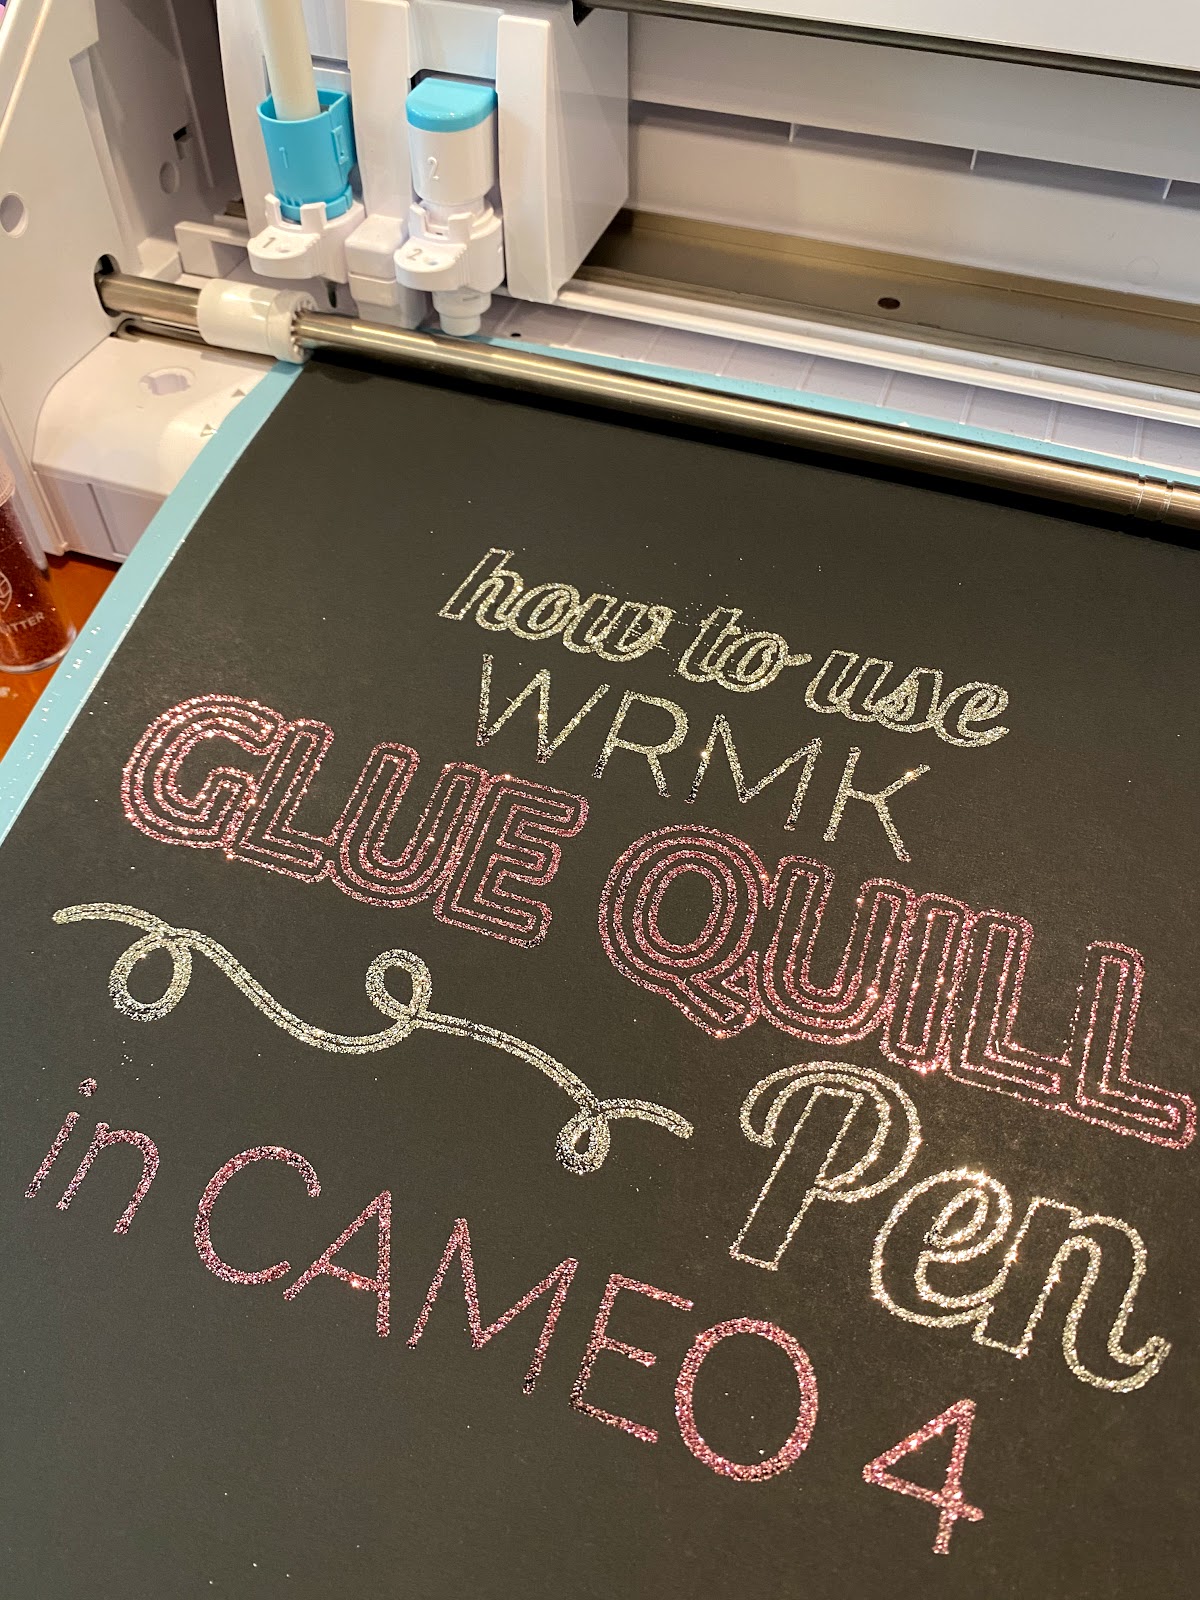 1
2
1
2
how to use
WRMK
GLUE QUILL
Pen
in CAMEO 4